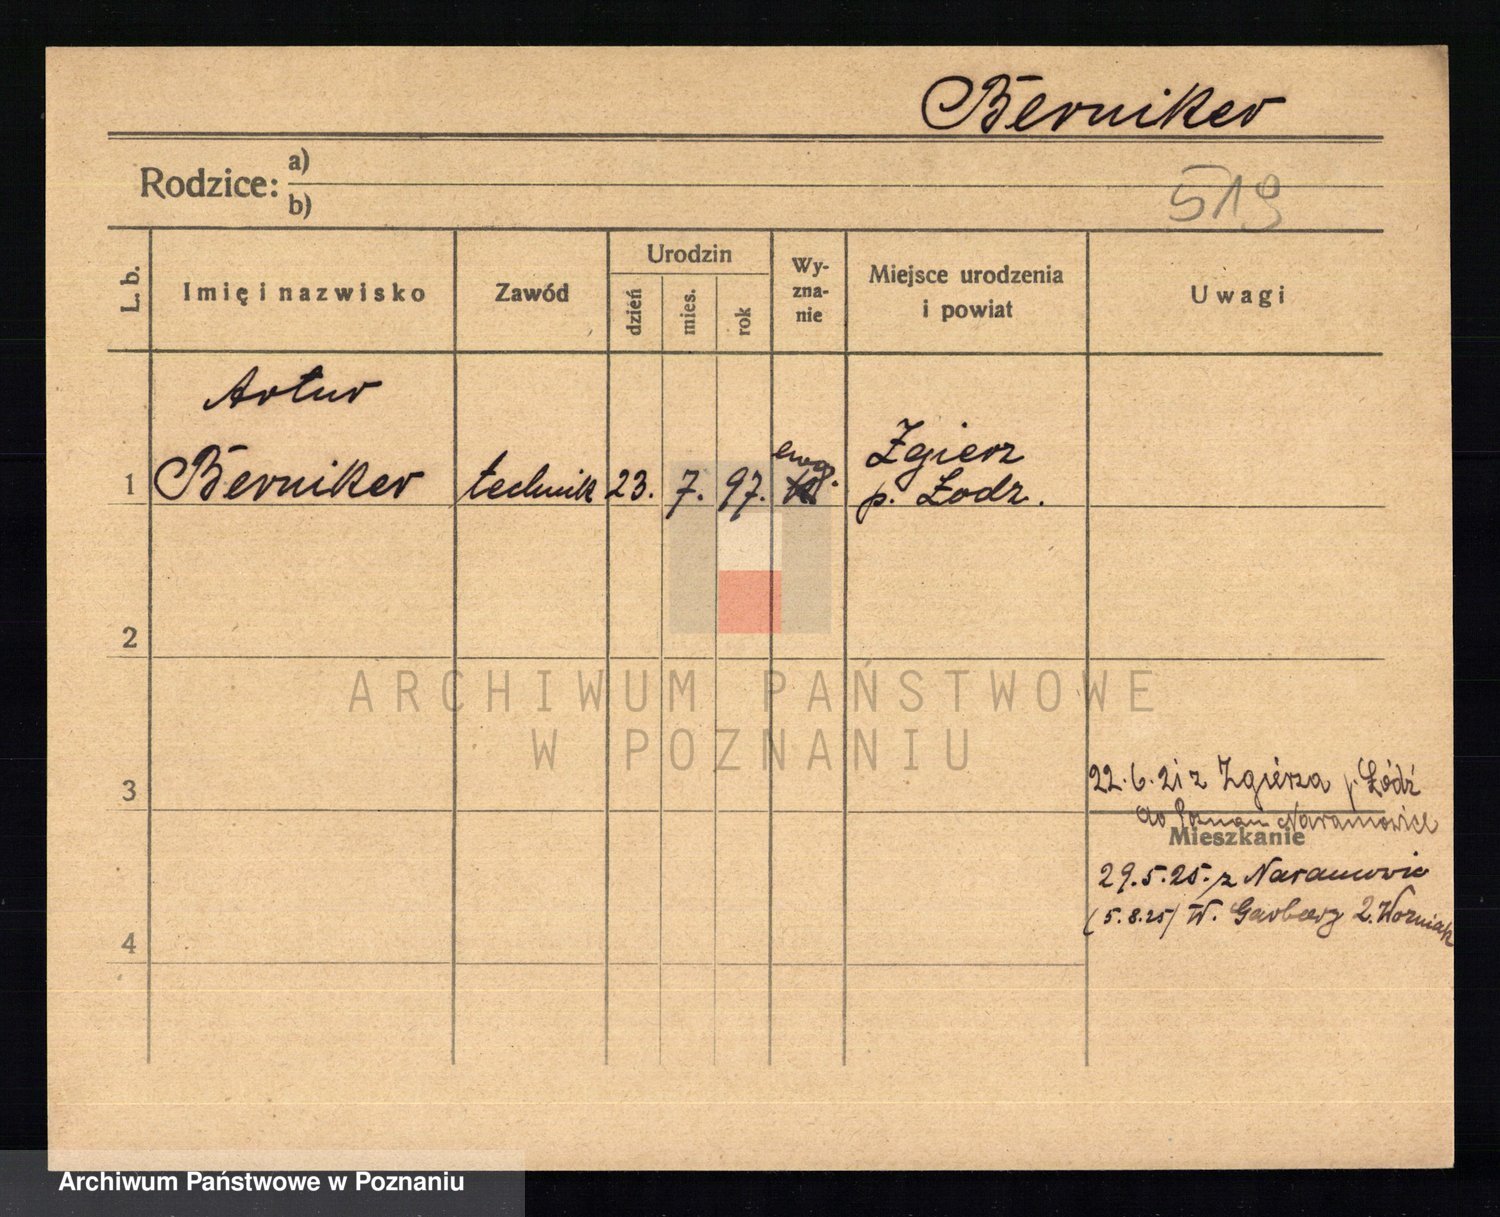 Berniker
Rodzice: a)
b)
519
L. b.
Imię i nazwisko
Zawód
Urodzin
dzień
mies.
rok
Wy-
zna-
nie
Miejsce urodzenia
i powiat
Uwagi
Artur
1 Berniker technik 23. 7. 97. ewg. Zgierz
p. Łodz.
2
3
4
22.6.21 z Zgierza p. Łódź
do Poznań Naramowice
Mieszkanie
29.5.25. z Naramowic
(5.8.25) W. Garbary 2. Wozniak
ARCHIWUM PAŃSTWOWE
W POZNANIU
Archiwum Państwowe w Poznaniu